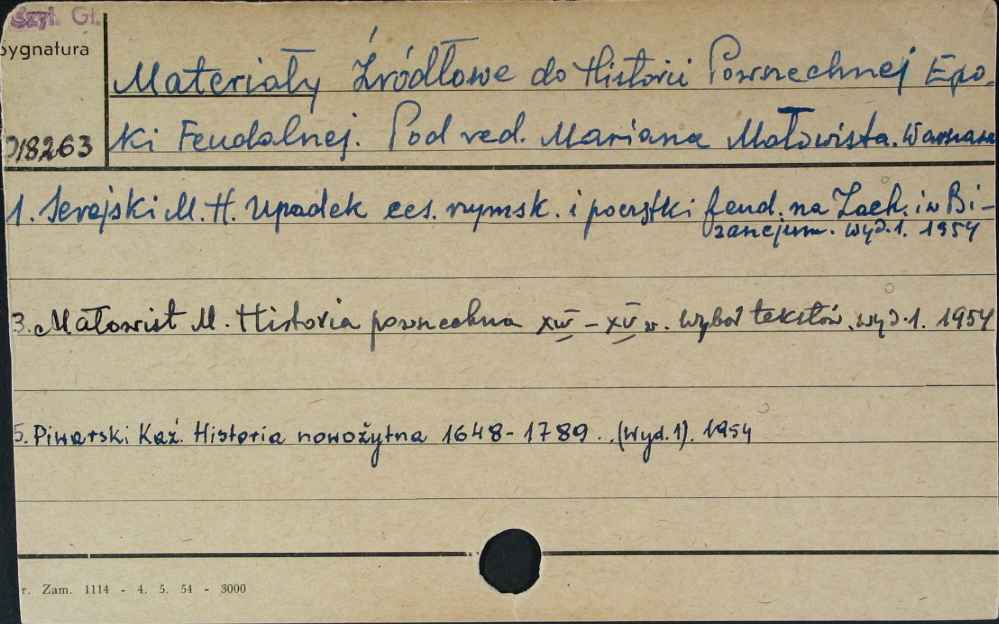 Czyt. Gł.
Sygnatura
Materiały Źródłowe do Historii Powszechnej Epo-
018263 ki Feudalnej. Pod red. Mariana Małowista. Warszawa
1. Serejski M. H. Upadek ces. rzymsk. i początki feud. na Zach. i w Bi-
zancjum. Wyd. 1. 1954
3. Małowist M. Historia powszechna XIV – XV w. Wybór tekstów. Wyd. 1. 1954
5. Piwarski Kaź. Historia nowożytna 1648-1789. (Wyd. 1). 1954
r. Zam. 1114 - 4. 5. 54 - 3000